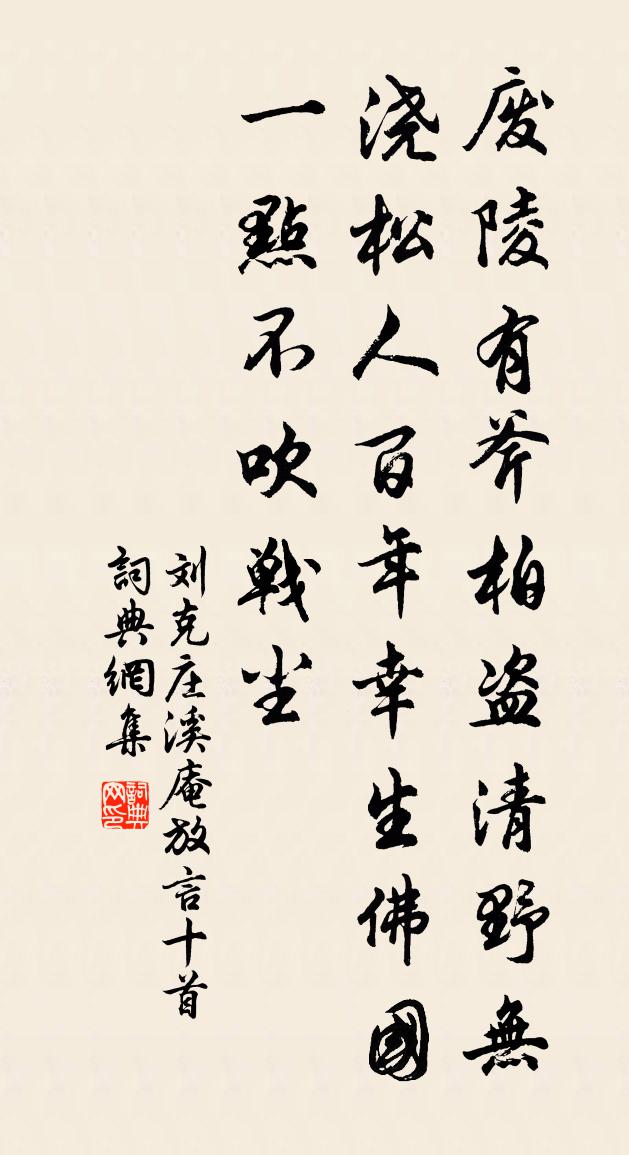 废陵有斧柏盗清野無
浇松人百年幸生佛國
一點不吹戦尘
刘克庄溪庵放言十首
詞典網集
詞典网印